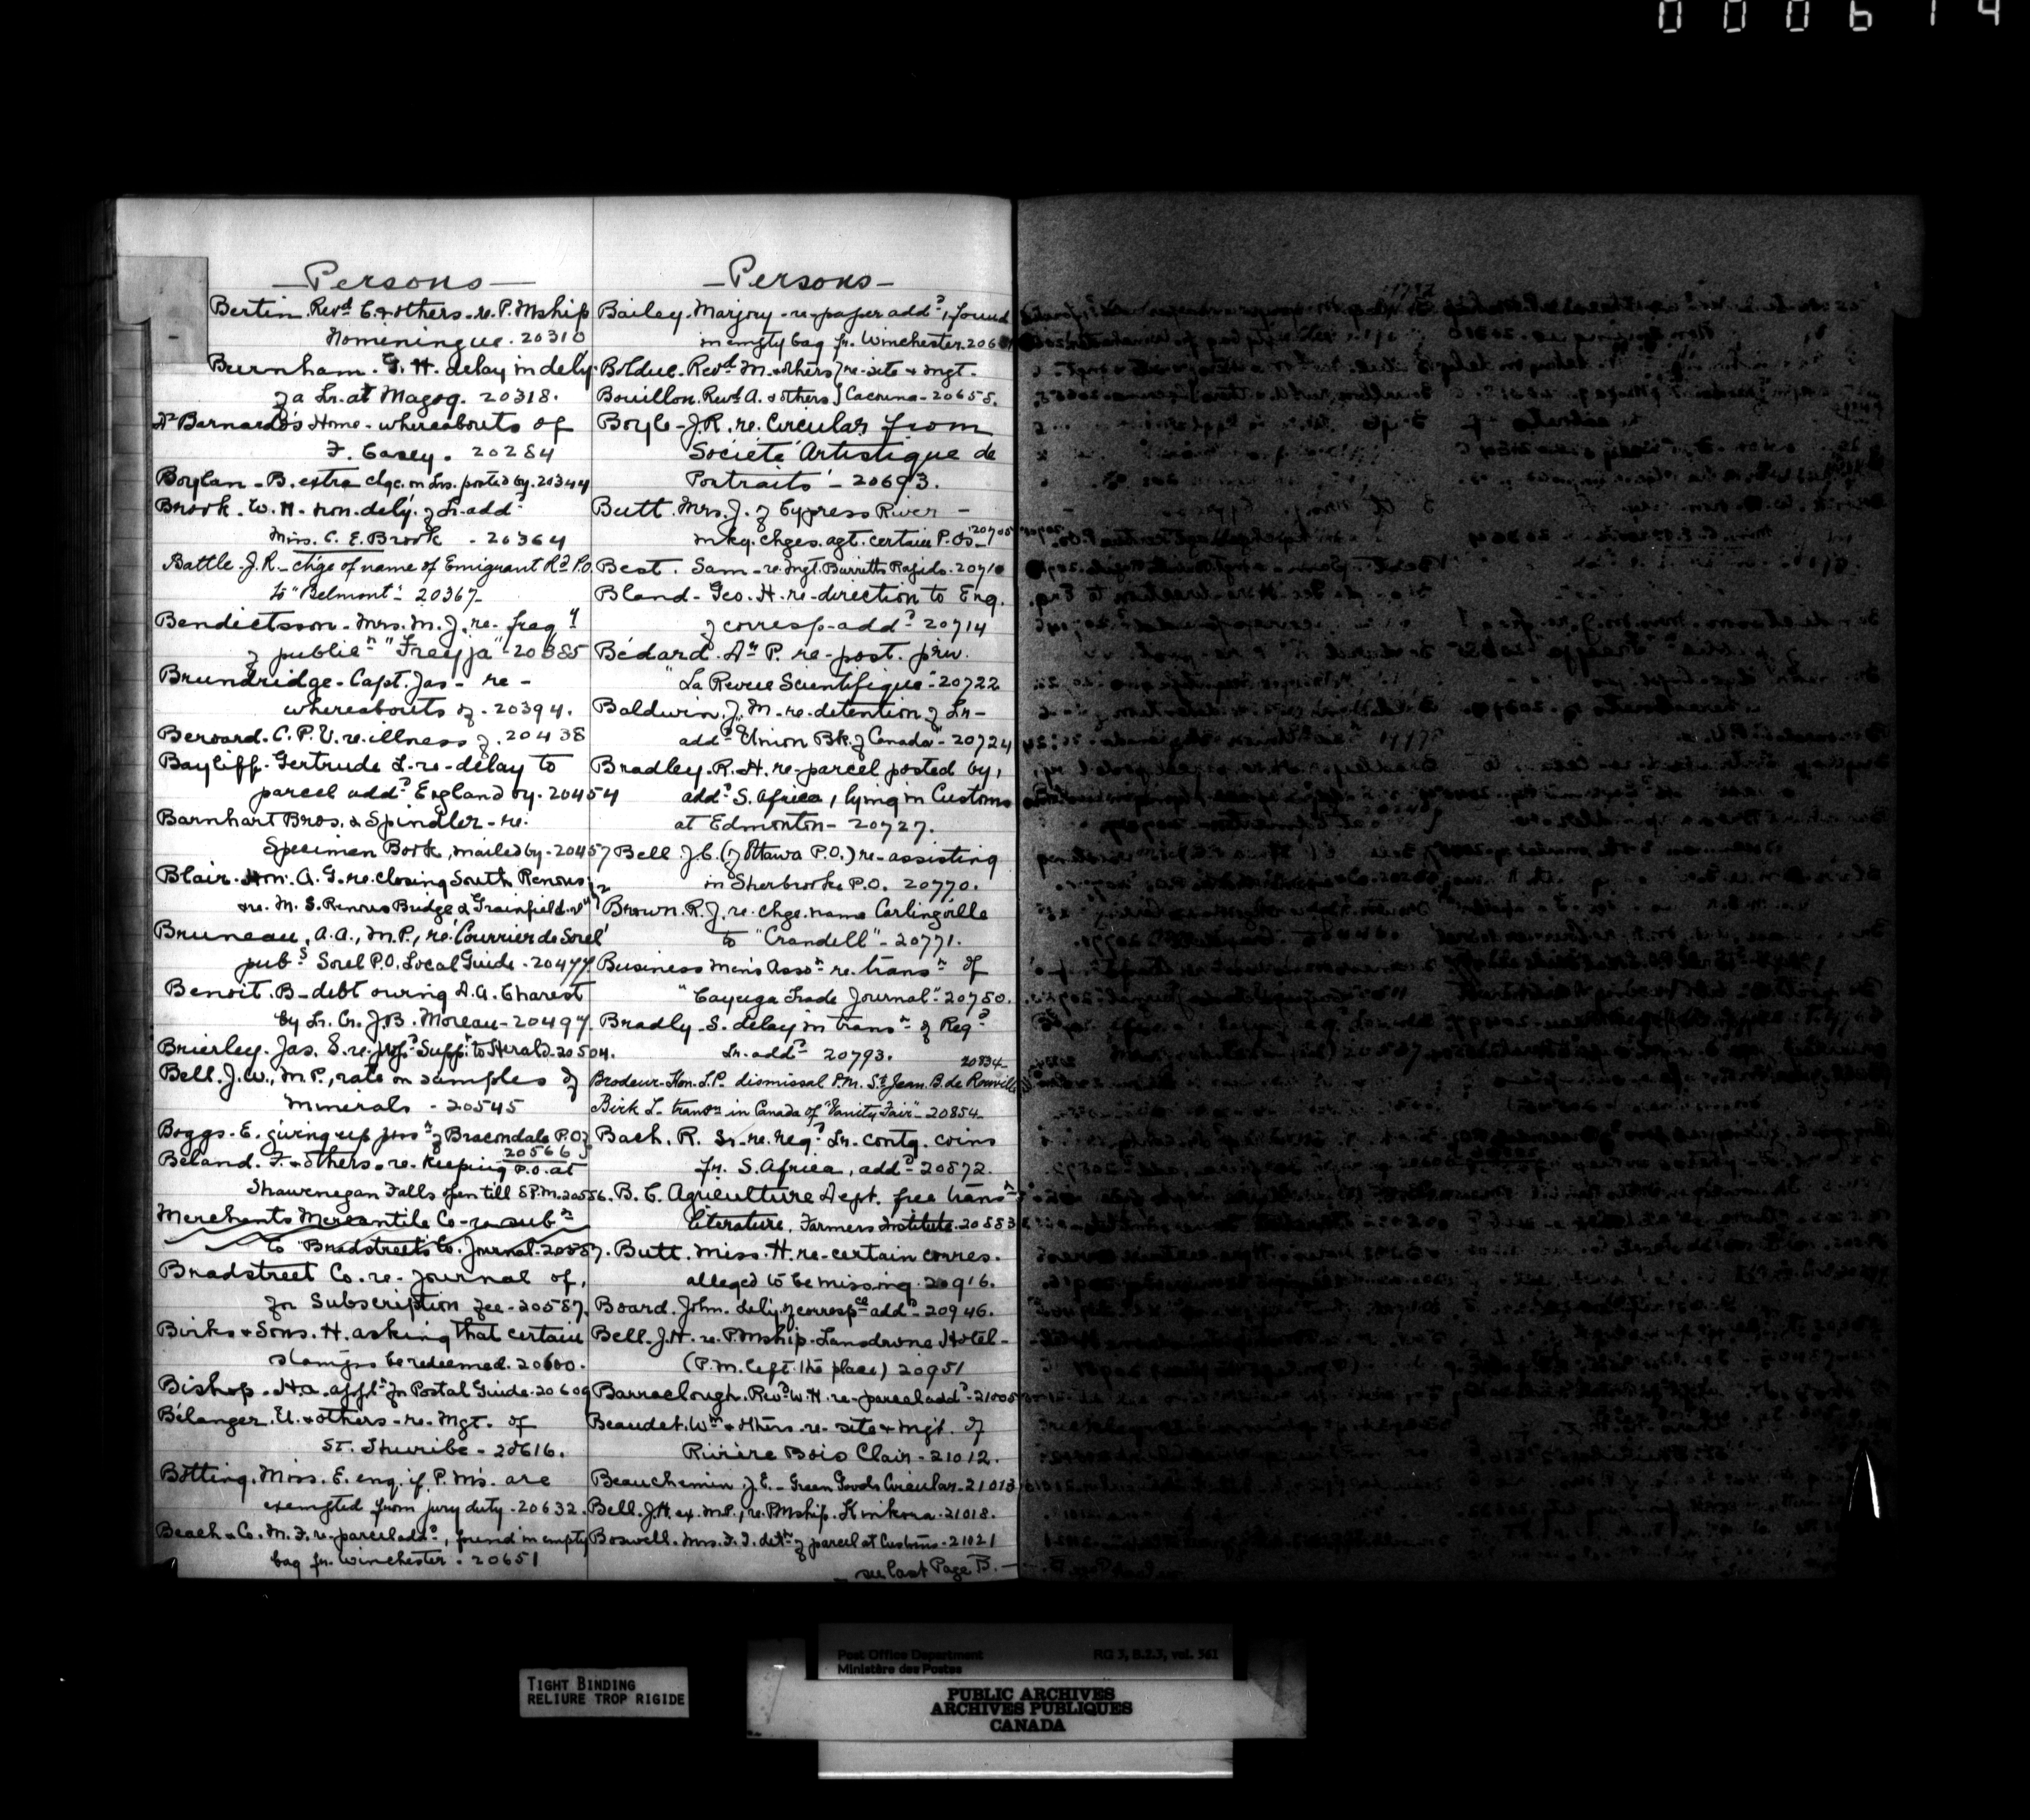 000614
Persons
Bertin Revd C. & others - re. P. Mship
Nomeningue. 20310
Burnham. G. H. delay in dely.
of a Lr. at Magog. 20318.
Dr Barnardo's Home - whereabouts of
F. Casey. 20284
Boylan - B. extra chge. on Lrs. posted by. 20344
Brook. W. H. non-dely. of Lr. addd
Miss. C. E. Brook - 20364
Battle. J. R. - chge of name of Emigrant Rd P.O.
to "Belmont" - 20367
Bendictsson - Mrs. M. J. re- freqy
of publicn "Freyja" - 20385
Brundridge - Capt. Jas - re -
whereabouts of - 20394.
Beroard. C. P. V. re. illness of. 20438
Baycliff. Gertrude L. re- delay to
parcel addd England by. 20454
Barnhart Bros. & Spindler - re.
Specimen Book, mailed by - 20457
Blair. Hon. A. G. re. closing South Renous
& re. M. S. Renous Bridge & Grainfield
Bruneau, A.A., M.P., re 'Courrier de Sorel'
pubs Sorel P.O. Local Guide - 20477
Benoit. B - debt owing A. A. Charest
by Lr. Cr. J. B. Moreau - 20497
Brierley. Jas. S. re. propd Suppt to Herald. 20504.
Bell. J. W., M.P., rate on samples of
Minerals - 20545
Boggs. E. giving up posn of Bracondale P.O.
20566
Beland. F. & others - re. keeping P.O. at
Shawenegan Falls open till 8 P.M. 20556.
Merchants Mercantile Co - re subn
to "Bradstreets Co. Journal. 20587.
Bradstreet Co. re- Journal of,
for Subscription fee - 20587.
Birks & Sons. H. asking that certain
stamps be redeemed. 20600.
Bishop. H.A. appln for Postal Guide - 20609
Bélanger. U. & others - re- Mgt. of
St. Thuribe - 20616.
Botting. Miss. E. enq. if P. Ms. are
exempted from jury duty - 20632.
Beach & Co. M. F. re- parcel addd, found in empty
bag fr. Winchester. 20651
Persons
Bailey. Marjory - re- paper addd, found
in empty bag fr. Winchester. 20651
Bolduc. Revd M. & others } re- site & mgt.
Bouillon. Revd A. & others } Cacouna - 20655.
Boyle - J. R. re. Circular from
'Société Artistique de
Portraits' - 20693.
Butt. Mrs. J. of Cypress River -
mkg. chges. agt. certain P. Os - 20705
Best. Sam - re. mgt. Burritts Rapids. 20710
Bland - Geo. H. re-direction to Eng.
of corresp. addd 20714
Bédard. A. P. re- post. priv.
"La Revue Scientifique" - 20722
Baldwin. J. M. re. detention of Lr -
addd "Union Bk. of Canada" - 20724
Bradley. R. H. re- parcel posted by,
addd S. Africa, lying in Customs
at Edmonton - 20727.
Bell. J. C. (of Ottawa P.O.) re- assisting
in Sherbrooke P.O. 20770.
Brown. R. J. re- chge. name Carlingville
to "Crandell" - 20771.
Business Men's Asson re. transn of
"Cayuga Trade Journal" - 20780.
Bradly - S. delay in transn of Regd
Lr. addd 20793.
20834
Brodeur - Hon. L. P. dismissal P.M. St Jean B. de Rouville
Birk L - transn in Canada of "Vanity Fair" - 20854
Bach. R. Sr. re. regd Lr. contg. coins
fr. S. Africa, addd 20872.
B. C. Agriculture Dept. free transn
literature, Farmers Institute. 20883
Butt. Miss. H. re- certain corres.
alleged to be missing. 20916.
Board. John. dely. of correspce addd - 20946.
Bell. J. H. re. P.Mship. Lansdowne Hotel -
(P.M. left the place) 20951
Barraclough. Revd W. H. re- parcel addd - 21005
Beaudet. Wm & others - re- site & mgt. of
Rivière Bois Clair - 21012.
Beauchemin. J. E. - Green Goods Circular - 21013
Bell. J. H. ex. M.P., re. P.Mship. Kinkora. 21018.
Boswell. Mrs. F. J. detn of parcel at Customs - 21021
see last Page B. -
TIGHT BINDING
RELIURE TROP RIGIDE
Post Office Department RG 3, B.2.3, vol. 561
Ministère des Postes
PUBLIC ARCHIVES
ARCHIVES PUBLIQUES
CANADA